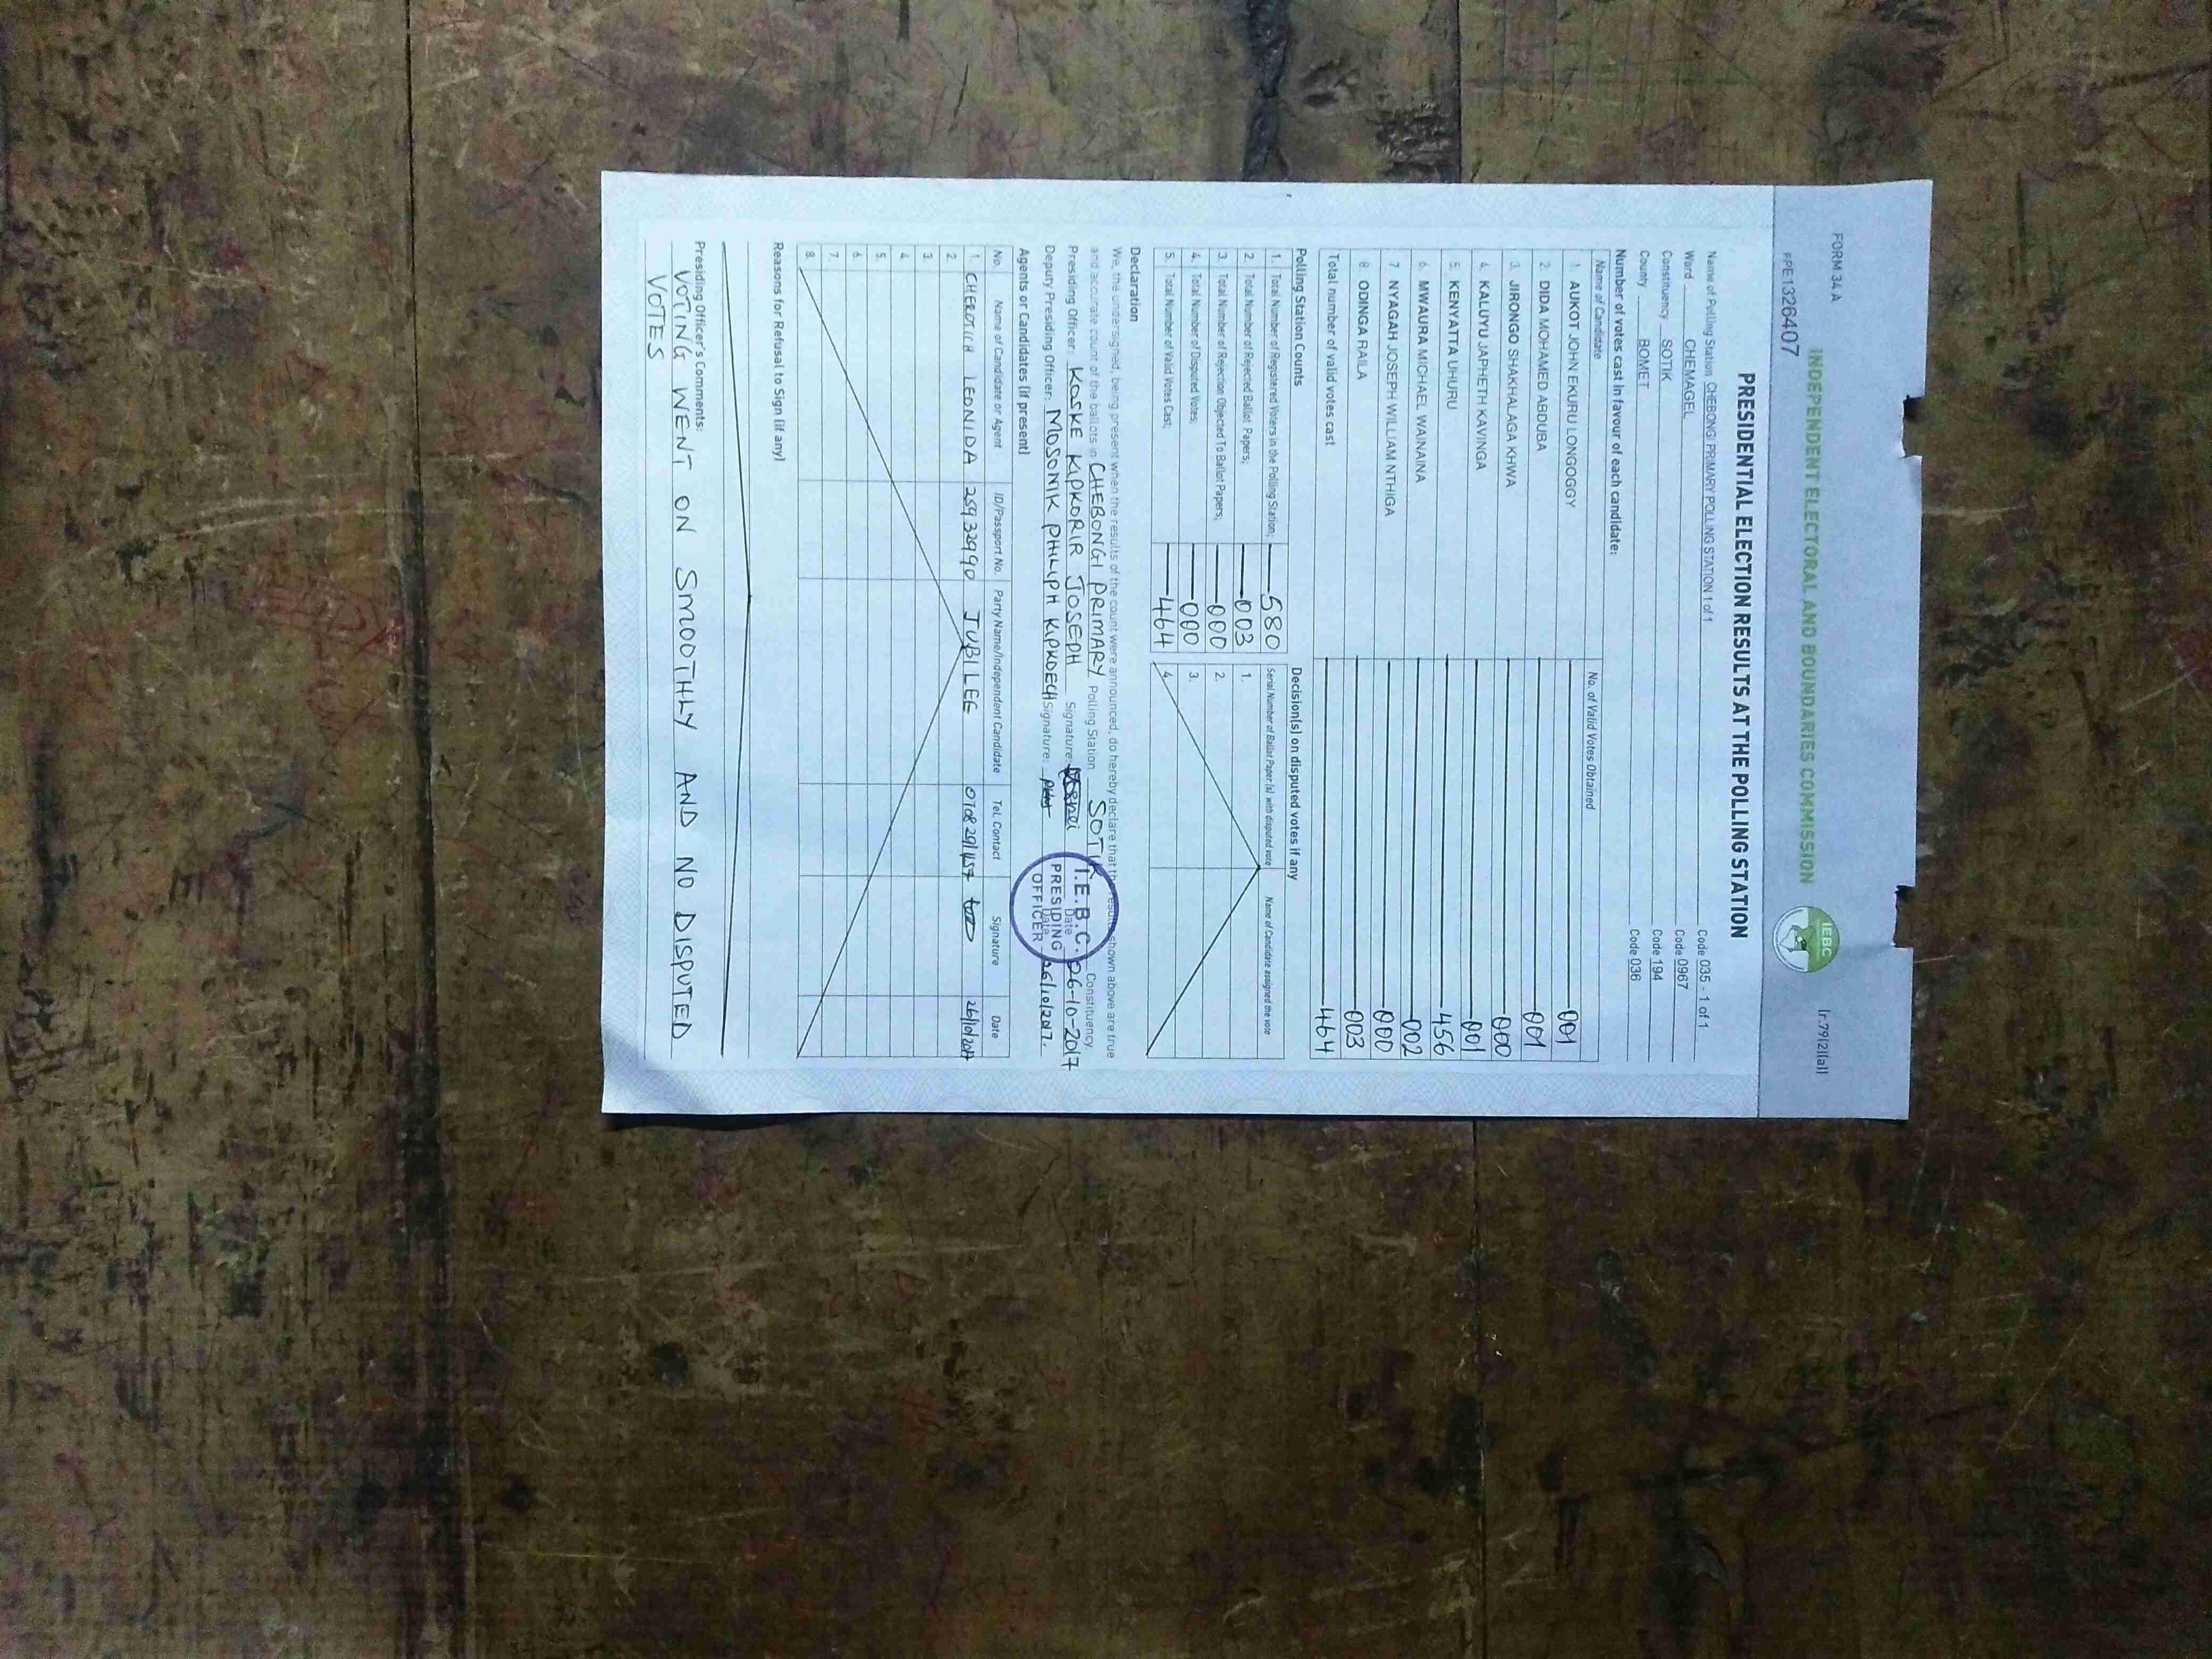 FORM 34 A
(r.79(2)(a))
PPE1326407
INDEPENDENT ELECTORAL AND BOUNDARIES COMMISSION
IEBC
PRESIDENTIAL ELECTION RESULTS AT THE POLLING STATION
Name of Polling Station CHEBONGI PRIMARY POLLING STATION 1 of 1 Code 035 - 1 of 1
Ward CHEMAGEL Code 0967
Constituency SOTIK Code 194
County BOMET Code 036
Number of votes cast in favour of each candidate:
Name of Candidate No. of Valid Votes Obtained
1. AUKOT JOHN EKURU LONGOGGY 001
2. DIDA MOHAMED ABDUBA 001
3. JIRONGO SHAKHALAGA KHWA 000
4. KALUYU JAPHETH KAVINGA 001
5. KENYATTA UHURU 456
6. MWAURA MICHAEL WAINAINA 002
7. NYAGAH JOSEPH WILLIAM NTHIGA 000
8. ODINGA RAILA 003
Total number of valid votes cast 464
Polling Station Counts
1. Total Number of Registered Voters in the Polling Station; 580
2. Total Number of Rejected Ballot Papers; 003
3. Total Number of Rejection Objected To Ballot Papers; 000
4. Total Number of Disputed Votes; 000
5. Total Number of Valid Votes Cast; 464
Decision(s) on disputed votes if any
Serial Number of Ballot Paper (s) with disputed vote Name of Candidate assigned the vote
1.
2.
3.
4.
Declaration
We, the undersigned, being present when the results of the count were announced, do hereby declare that the results shown above are true
and accurate count of the ballots in CHEBONGI PRIMARY Polling Station SOTIK Constituency
Presiding Officer: KOSKE KIPKORIR JOSEPH Signature: Date 26-10-2017
Deputy Presiding Officer: MOSONIK PHILIPH KIPKOECH Signature: Date 26/10/2017
I.E.B.C.
PRESIDING
OFFICER
Agents or Candidates (if present)
No. Name of Candidate or Agent ID/Passport No. Party Name/Independent Candidate Tel. Contact Signature Date
1. CHEROTICH LEONIDA 25932990 JUBILEE 26/10/2017
2.
3.
4.
5.
6.
7.
8.
Reasons for Refusal to Sign (if any)
Presiding Officer's Comments:
VOTING WENT ON SMOOTHLY AND NO DISPUTED
VOTES